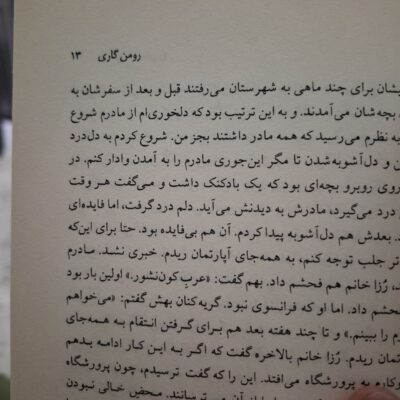 رومن گاری ۱۳
یشان برای چند ماهی به شهرستان می‌رفتند قبل و بعد از سفرشان به
بچه‌شان می‌آمدند. و به این ترتیب بود که دلخوری‌ام از مادرم شروع
به نظرم می‌رسید که همه مادر داشتند بجز من. شروع کردم به دل‌درد
ن و دل‌آشوبه‌شدن تا مگر این‌جوری مادرم را به آمدن وادار کنم. در
روی روبرو بچه‌ای بود که یک بادکنک داشت و می‌گفت هر وقت
درد می‌گیرد، مادرش به دیدنش می‌آید. دلم درد گرفت، اما فایده‌ای
د. بعدش هم دل‌آشوبه پیدا کردم. آن هم بی‌فایده بود. حتا برای این‌که
تر جلب توجه کنم، به همه‌جای آپارتمان ریدم. خبری نشد. مادرم
د، رُزا خانم هم فحشم داد. بهم گفت: «عربِ کون‌نشور.» اولین بار بود
فحشم داد. اما او که فرانسوی نبود. گریه‌کنان بهش گفتم: «می‌خواهم
م را ببینم.» و تا چند هفته بعد هم برای گرفتن انتقام به همه‌جای
تمان ریدم. رُزا خانم بالاخره گفت که اگر به این کار ادامه بدهم
وکارم به پرورشگاه می‌افتد. این را که گفت ترسیدم، چون پرورشگاه
از آن می‌ترسانند. محضِ خالی نبودن